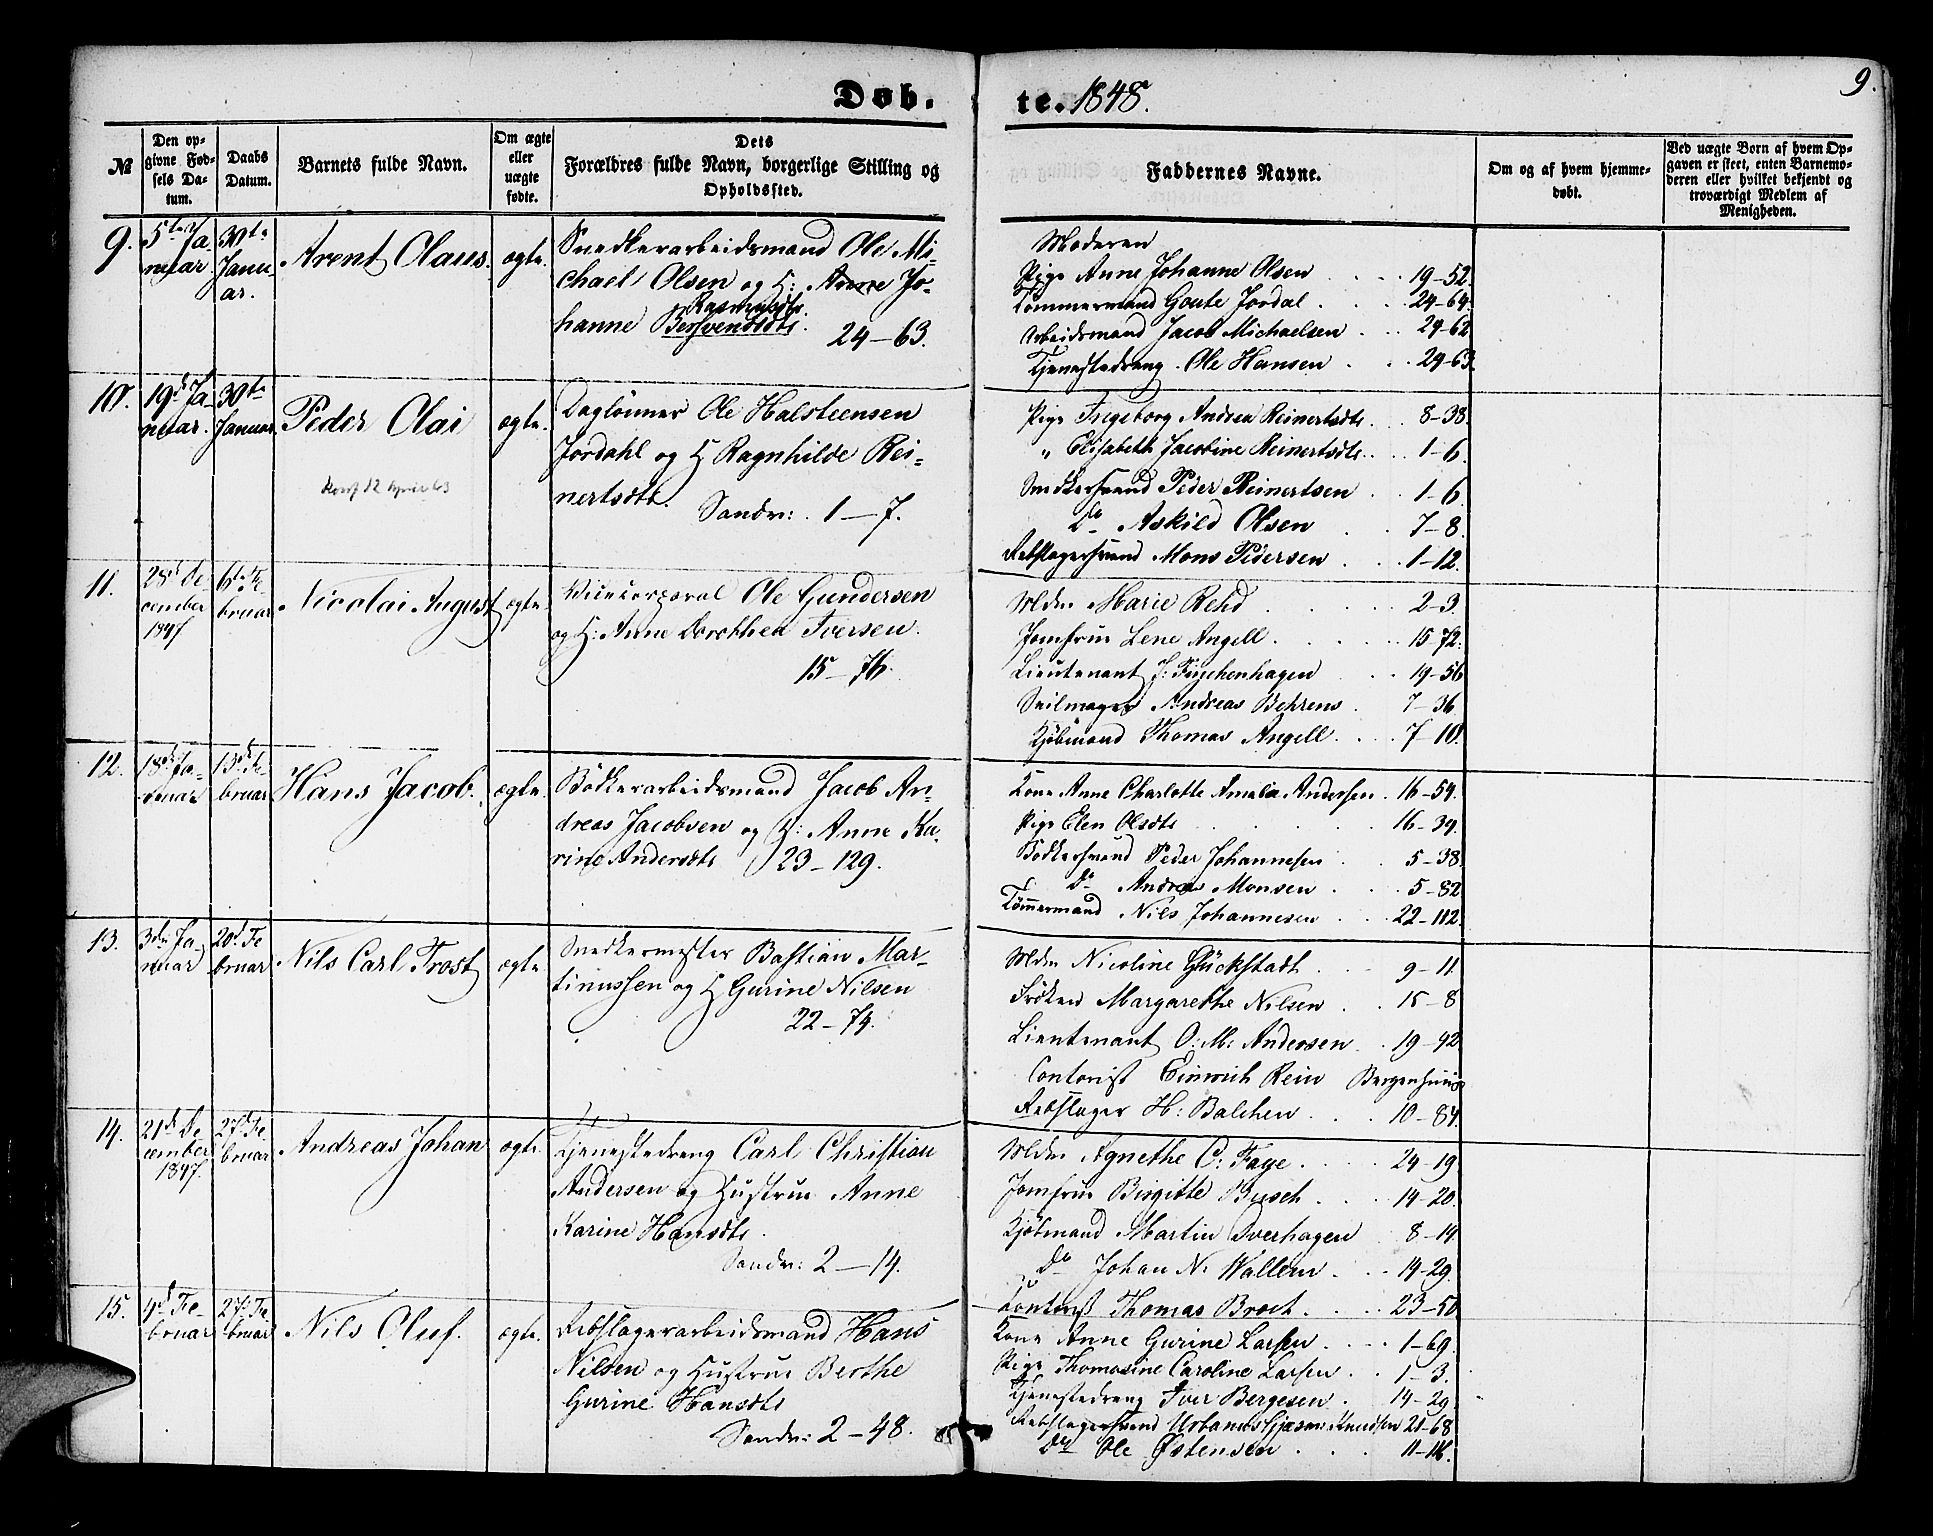 Døb.
te. 1848.
9.
№
Den op-
givne Fød-
sels Da-
tum.
Daabs
Datum.
Barnets fulde Navn.
Om ægte
eller
uægte
fødte.
Dets
Forældres fulde Navn, borgerlige Stilling og
Opholdssted.
Faddernes Navne.
Om og af hvem hjemme-
døbt.
Ved uægte Born af hvem Op-
gaven er skeet, enten Barnemo-
deren eller hvilket bekjendt og
troværdigt Medlem af
Menigheden.
9.
5te Ja-
nuar.
30te
Janu-
ar.
Arent Olaus.
ægte.
Snedkerarbeidsmand Ole Mi-
chael Olsen og H: Anne Jo-
Rasmusdtr.
hanne
24-63.
Moderen
Pige Anne Johanne Olsen 19-52.
Tømmermand Goute Jordal 24-64.
Arbeidsmand Jacob Michaelsen 24-62
Tjenestedreng Ole Hansen 24-63.
10.
19d Ja-
nuar.
30te
Januar.
Peder Olai
ægte.
Daglönner Ole Halsteensen
Jordahl og H Ragnhilde Rei-
nertsdtr.
Sandv: 1-7.
Pige Ingeborg Andrea Reinertsdtr. 8-38.
" Elisabeth Jacobine Reinertsdtr. 1-6.
Snedkersvend Peder Reinertsen 1-6.
Do Askild Olsen 7-8.
Rebslagersvend Mons Pedersen 1-12.
11.
28d De-
cember
1847
6te Fe-
bruar
Nicolai August
ægte.
Vicecorporal Ole Gundersen
og H: Anne Dorothea Iversen.
15-76.
Mdm Marie Rehd 2-3.
Jomfrue Lene Angell 15-72.
Lieutenant J: Finchenhagen 19-56
Seilmager Andreas Behrens 7-36
Kjøbmand Thomas Angell 7-10.
12.
18d Ja-
nuar
13d Fe-
bruar
Hans Jacob.
ægte.
Bödkerarbeidsmand Jacob An-
dreas Jacobsen og H: Anne Ka-
rine Andersdtr 23-129.
Kone Anne Charlotte Amalia Andersen 16-54.
Pige Elen Olsdtr 16-34.
Bödkersvend Peder Johannesen 5-38.
Do Andreas Monsen 5-82
Tømmermand Nils Johannesen 22-112.
13.
3die Ja-
nuar
20d Fe-
bruar
Nils Carl Trost
ægte.
Snedkermester Bastian Mar-
tinussen og H Gurine Nilsen
22-74.
Mdm Nicoline Glückstadt 9-11.
Frøken Margarethe Nilsen 15-8
Lieutenant O: M: Andersen 19-42
Contorist Einrich Rein Bergenhuus
Rebslager H: Balchen 10-84.
14.
21d De-
cember
1847.
27d Fe-
bruar
Andreas Johan
ægte.
Tjenestedreng Carl Christian
Andersen og Hustrue Anne
Karine Hansdtr.
Sandv: 2-14.
Mdm Agnethe C: Faye 24-19.
Jomfrue Birgitte Busch 14-20.
Kjøbmand Martin Tverhagen 8-14
Do Johan N. Wallem 14-29.
Contorist Thomas Broch 23-50
15.
4d Fe-
bruar
27d Fe-
bruar
Nils Oluf.
ægte.
Rebslagerarbeidsmand Hans
Nilsen og Hustrue Berthe
Gurine Hansdtr
Sandv: 2-48.
Kone Anne Gurine Larsen 1-69.
Pige Thomasine Caroline Larsen 1-3.
Tjenestedreng Iver Bergesen 14-29
Rebslagersvend Knudsen 21-68
Do Ole Østensen 11-116.